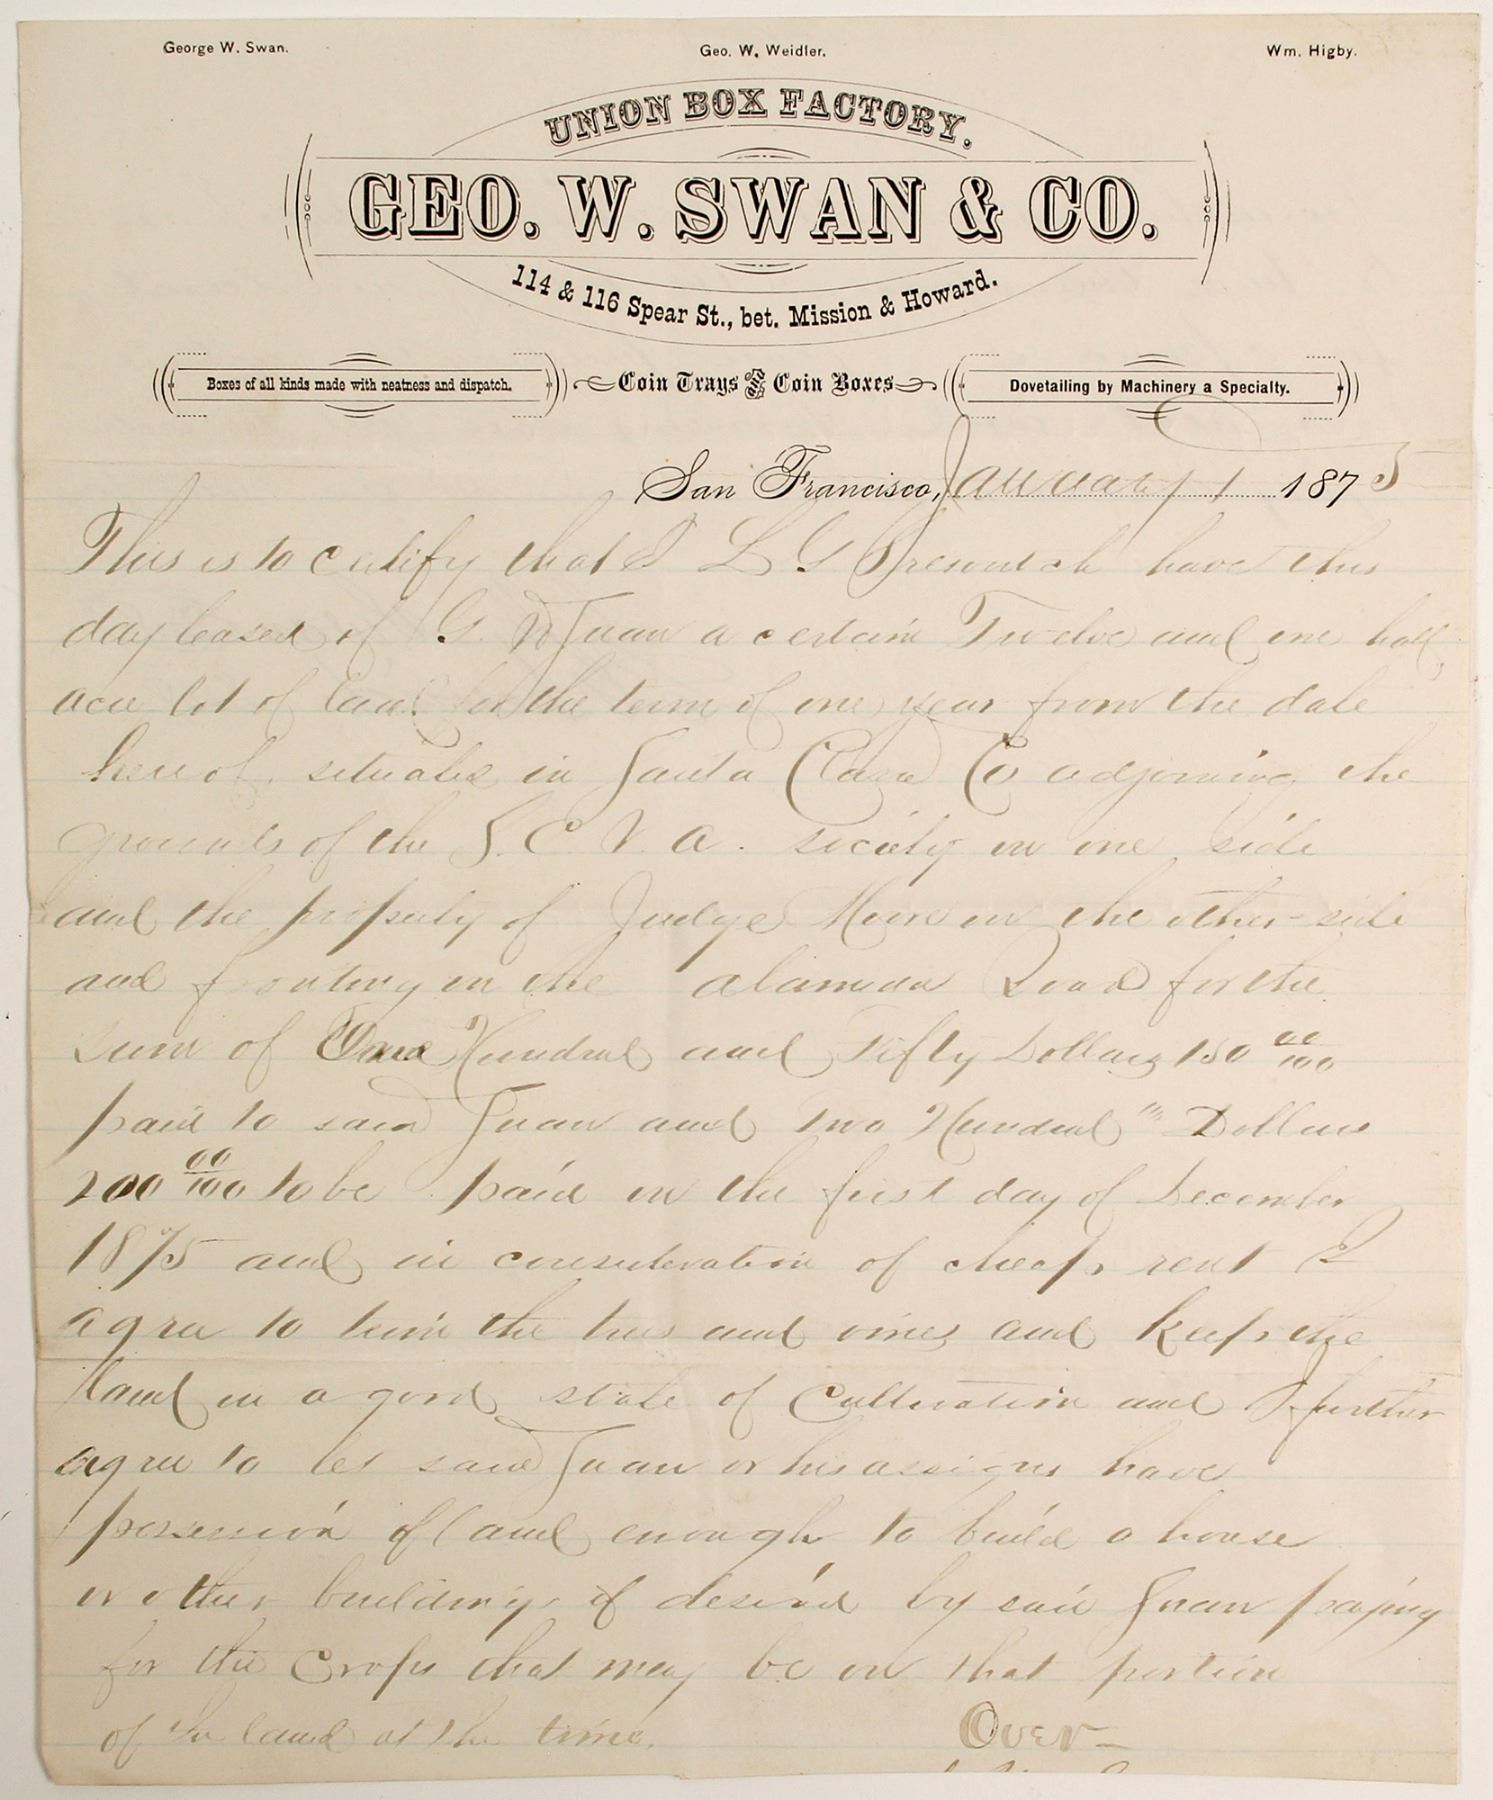 George W. Swan. Geo. W. Weidler. Wm. Higby.
UNION BOX FACTORY.
GEO. W. SWAN & CO.
114 & 116 Spear St., bet. Mission & Howard.
Boxes of all kinds made with neatness and dispatch. Coin Trays and Coin Boxes Dovetailing by Machinery a Specialty.
San Francisco, January 1 1875
This is to certify that I L G have this
day leased of G. W Swan a certain Twelve and one half
acre lot of land for the term of one year from the date
hereof. situated in Santa Clara Co adjoining the
grounds of the S. C. V. A. society on one side
and the property of Judge on the other side
and fronting on the alameda Road for the
sum of One Hundred and Fifty Dollars 150 00/100
paid to said Swan and Two Hundred " Dollars
200 00/100 to be paid on the first day of December
1875 and in consideration of cheap rent I
agree to trim the trees and vines and keep the
land in a good state of Cultivation and I further
agree to let said Swan or his assigns have
possession of land enough to build a house
or other buildings if desired by said Swan paying
for the Crops that may be on that portion
of the land at the time.
Over